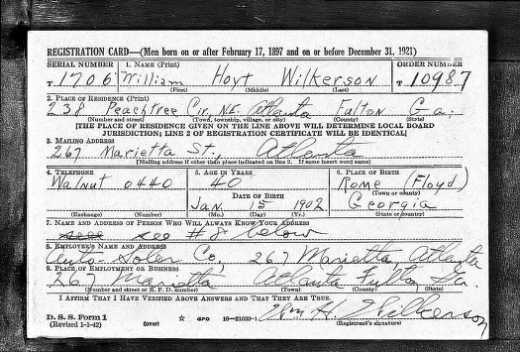 REGISTRATION CARD—(Men born on or after February 17, 1897 and on or before December 31, 1921)
SERIAL NUMBER 1. NAME (Print) ORDER NUMBER
T 1706 William Hoyt Wilkerson T 10987
(First) (Middle) (Last)
2. PLACE OF RESIDENCE (Print)
238 Peachtree Cir. N.E. Atlanta Fulton Ga.
(Number and street) (Town, township, village, or city) (County) (State)
[THE PLACE OF RESIDENCE GIVEN ON THE LINE ABOVE WILL DETERMINE LOCAL BOARD
JURISDICTION; LINE 2 OF REGISTRATION CERTIFICATE WILL BE IDENTICAL]
3. MAILING ADDRESS
267 Marietta St., Atlanta
[Mailing address if other than place indicated on line 2. If same insert word same]
4. TELEPHONE 5. AGE IN YEARS 6. PLACE OF BIRTH
Walnut 0440 40 Rome (Floyd)
DATE OF BIRTH (Town or county)
Jan. 15 1902 Georgia
(Exchange) (Number) (Mo.) (Day) (Yr.) (State or country)
7. NAME AND ADDRESS OF PERSON WHO WILL ALWAYS KNOW YOUR ADDRESS
see # 8 below
8. EMPLOYER'S NAME AND ADDRESS
Auto-Soler Co., 267 Marietta, Atlanta
9. PLACE OF EMPLOYMENT OR BUSINESS
267 Marietta Atlanta Fulton Ga.
(Number and street or R. F. D. number) (Town) (County) (State)
I AFFIRM THAT I HAVE VERIFIED ABOVE ANSWERS AND THAT THEY ARE TRUE.
D. S. S. Form 1 Wm H. Wilkerson
(Revised 1-1-42) (over) GPO (Registrant's signature)